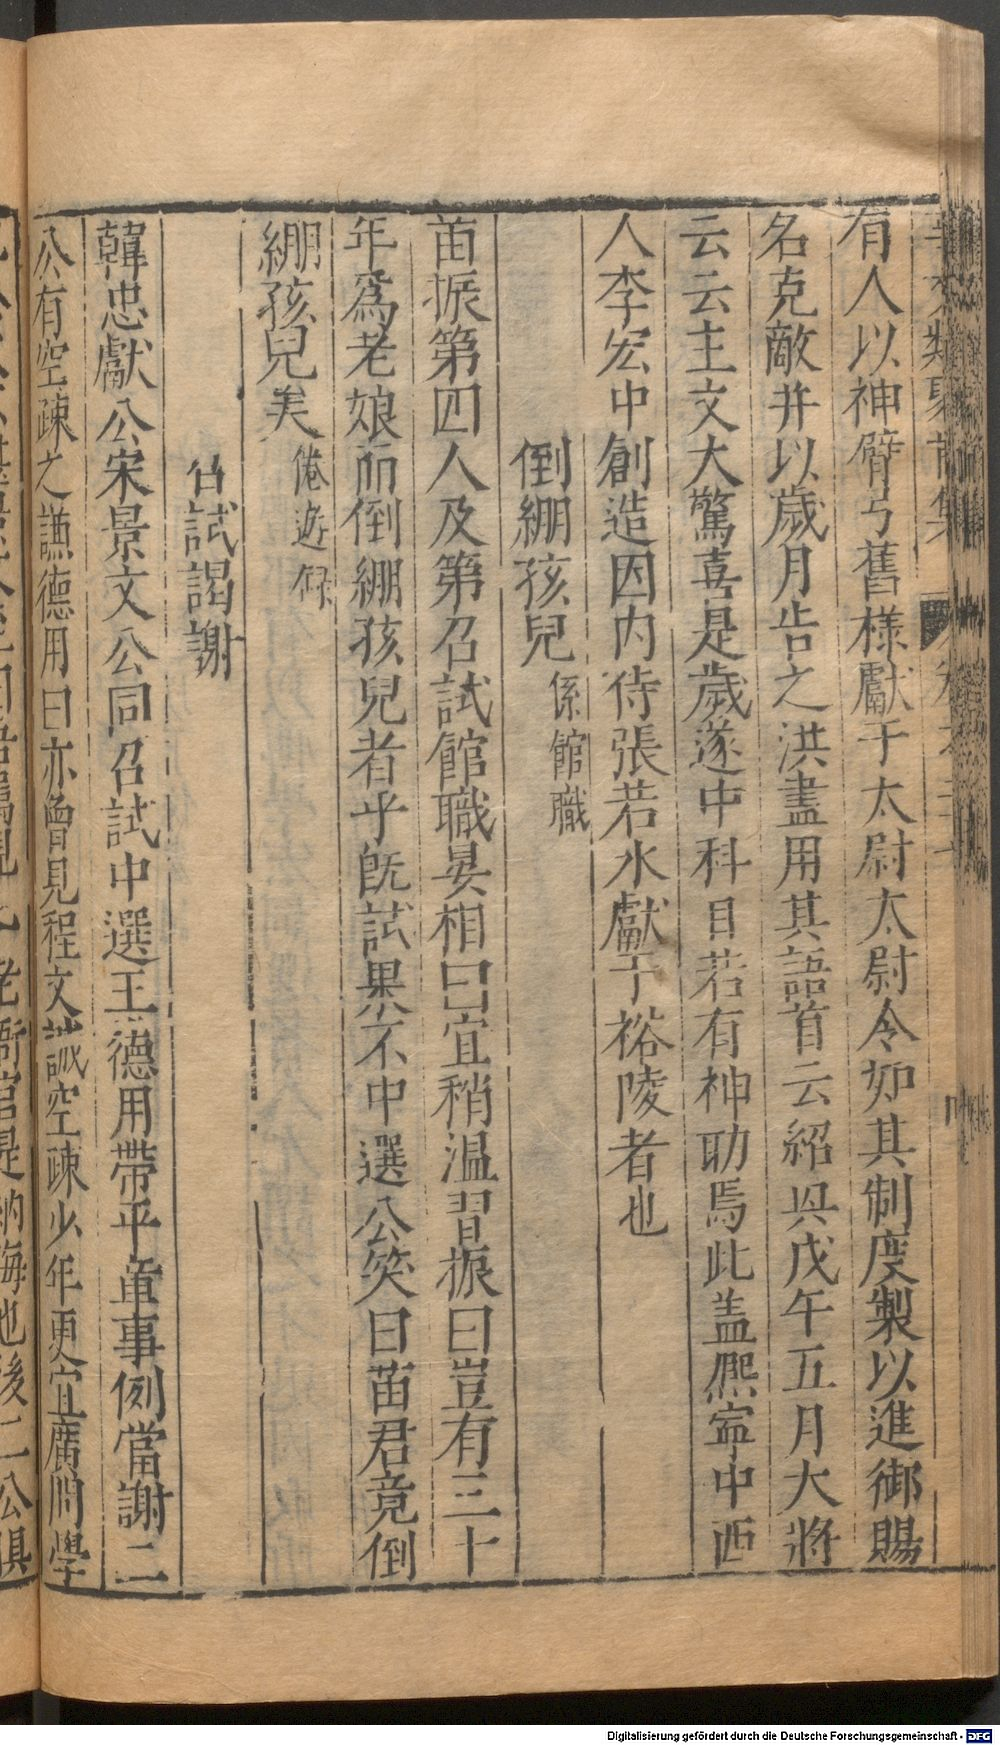 有人以神臂弓舊樣獻于太尉太尉令如其制度製以進御賜
名克敵并以歲月告之洪盡用其語首云紹興戊午五月大將
云云主文大驚喜是歲遂中科目若有神助焉此盖熈寧中西
人李宏中創造因内侍張若水獻于裕陵者也
倒綳孩兒 係館職
苗振第四人及第召試館職晏相曰宜稍温習振曰豈有三十
年爲老娘而倒綳孩兒者乎旣試果不中選公笑曰苗君竟倒
綳孩兒矣 倦遊録
召試謁謝
韓忠獻公宋景文公同召試中選王德用帶平章事例當謝二
公有空疎之謙德用曰亦曾見程文誠空疎少年更宜廣問學
Digitalisierung gefördert durch die Deutsche Forschungsgemeinschaft - DFG